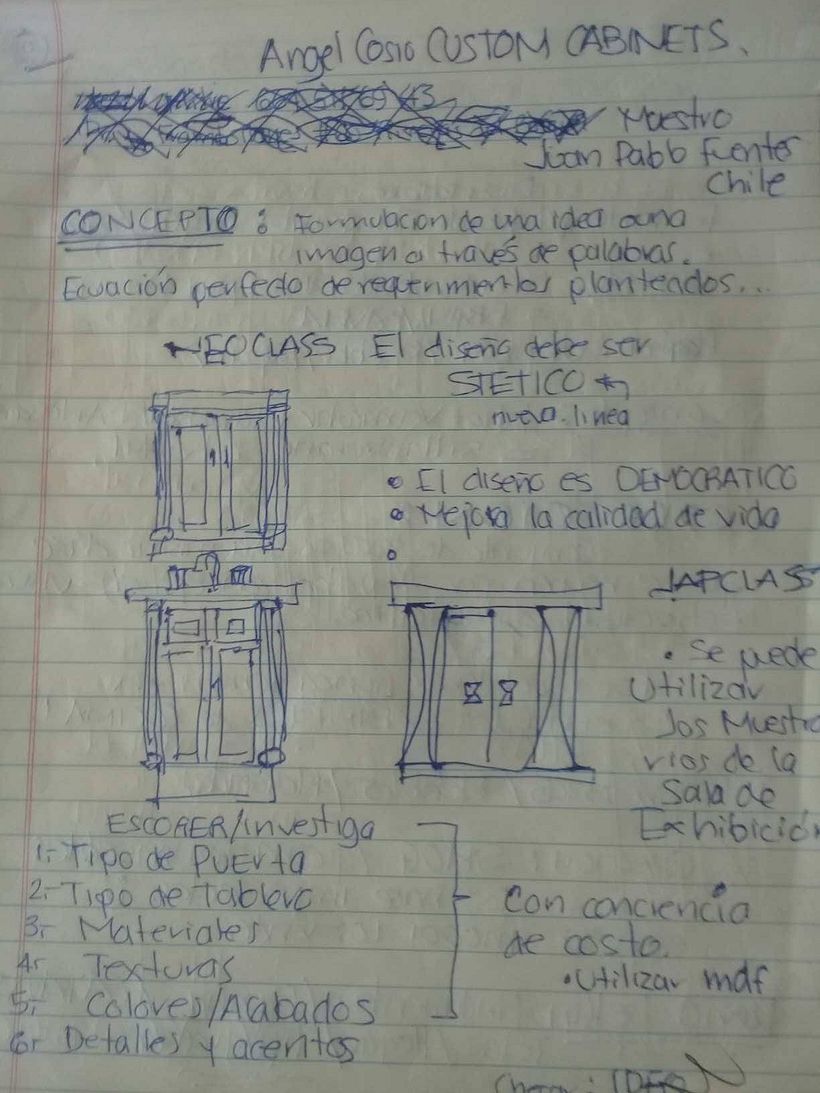 Angel Cosio CUSTOM CABINETS.
Maestro
Juan Pablo Fuentes
Chile
CONCEPTO: Formulacion de una idea o una
imagen a través de palabras.
Ecuación perfecta de requerimientos planteados...
NEOCLASS El diseño debe ser
STETICO
nueva linea
• El diseño es DEMOCRATICO
• Mejora la calidad de vida
•
JAPCLASS
• Se puede
Utilizar
los Muestra
rios de la
Sala de
Exhibición
ESCOGER/investiga
1.- Tipo de PUERTA
2.- Tipo de Tablero
3.- Materiales
4.- Texturas
5.- Colores/Acabados
6.- Detalles y acentos
Con conciencia
de costo.
• Utilizar mdf